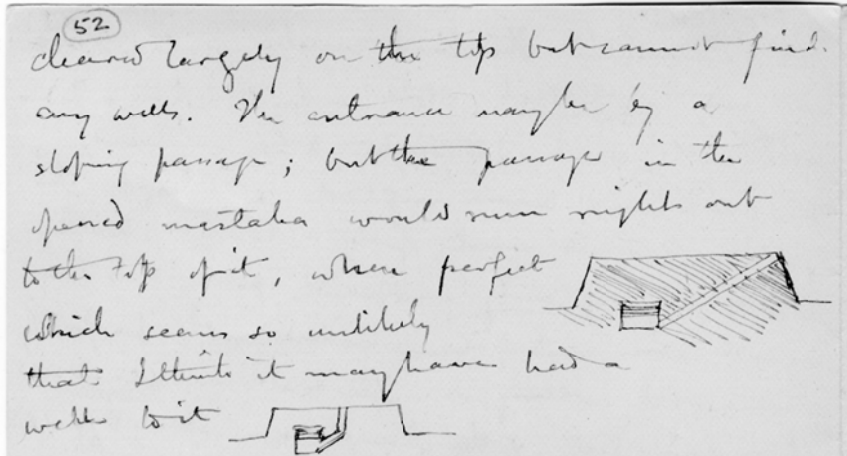 52
cleared largely on the top but cannot find
any wells. The entrance may be by a
sloping passage; but the passage in the
opened mastaba would run right out
to the top of it, when perfect
which seems so unlikely
that I think it may have had a
well to it